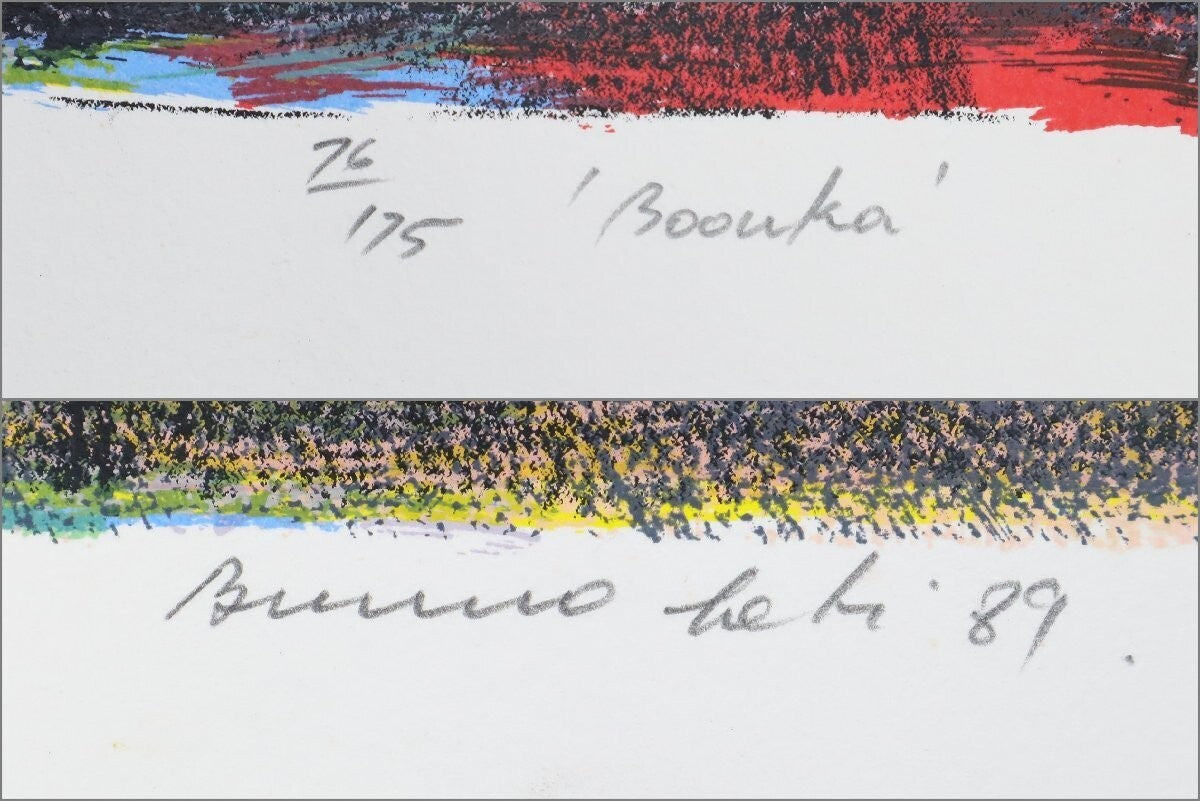 76
175
'Boouka'
Bruno Leti '89.